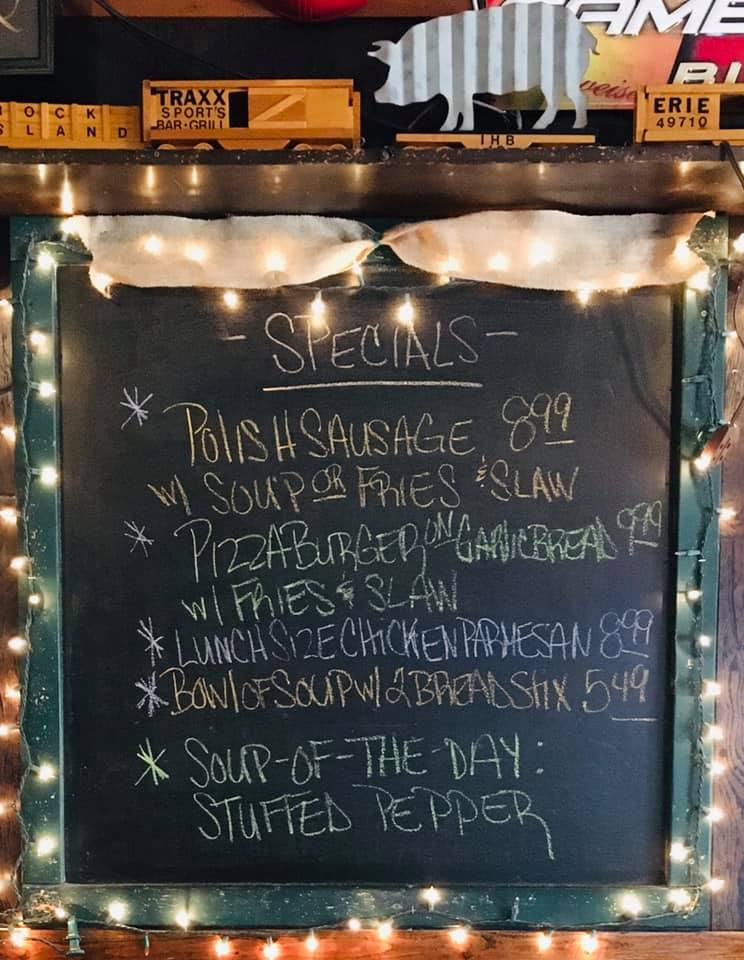 ROCK
ISLAND
TRAXX
SPORT'S
BAR·GRILL
IHB
ERIE
49710
GAME
- SPECIALS -
* POLISH SAUSAGE 8.99
W/ SOUP OR FRIES & SLAW
* PIZZA BURGER ON GARLIC BREAD 9.99
W/ FRIES & SLAW
* LUNCH SIZE CHICKEN PARMESAN 8.99
* BOWL OF SOUP W/ 2 BREADSTIX 5.49
* SOUP-OF-THE-DAY:
STUFFED PEPPER